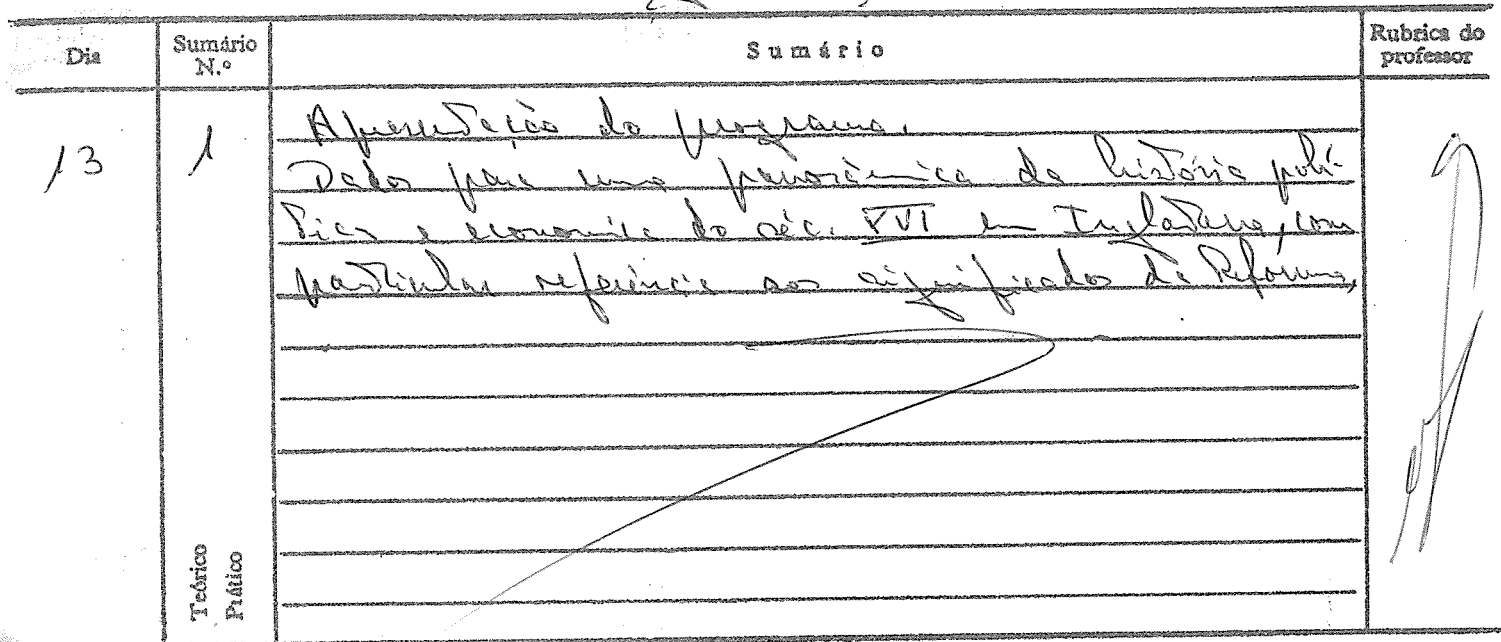 Dia Sumário N.º Sumário Rubrica do professor
13 1 Apresentação do programa.
Dados para uma panorâmica da história polí-
tica e economica do séc. XVI em Inglaterra, com
particular referência aos significados da Reforma,
Teórico
Prático